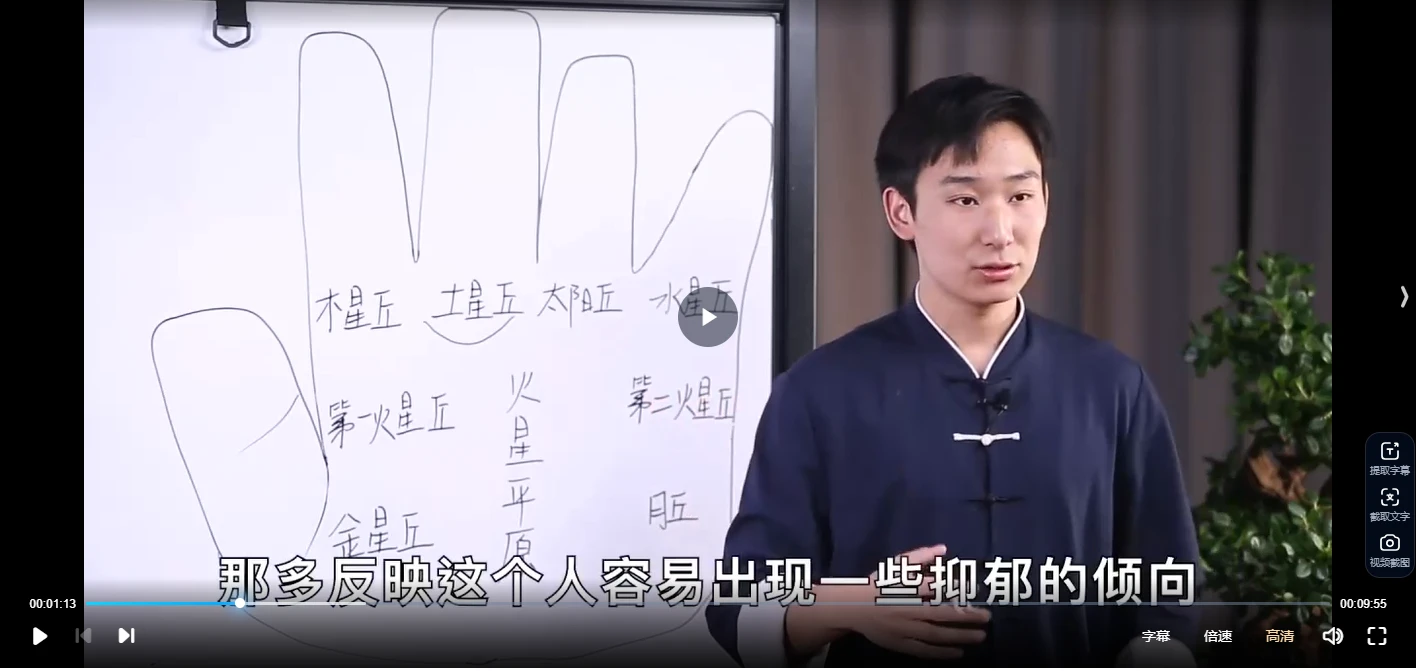 木星丘 土星丘 太阳丘 水星丘
第一火星丘 火星平原 第二火星丘
金星丘 月丘
那多反映这个人容易出现一些抑郁的倾向
提取字幕
截取文字
视频截图
00:01:13
00:09:55
字幕 倍速 高清